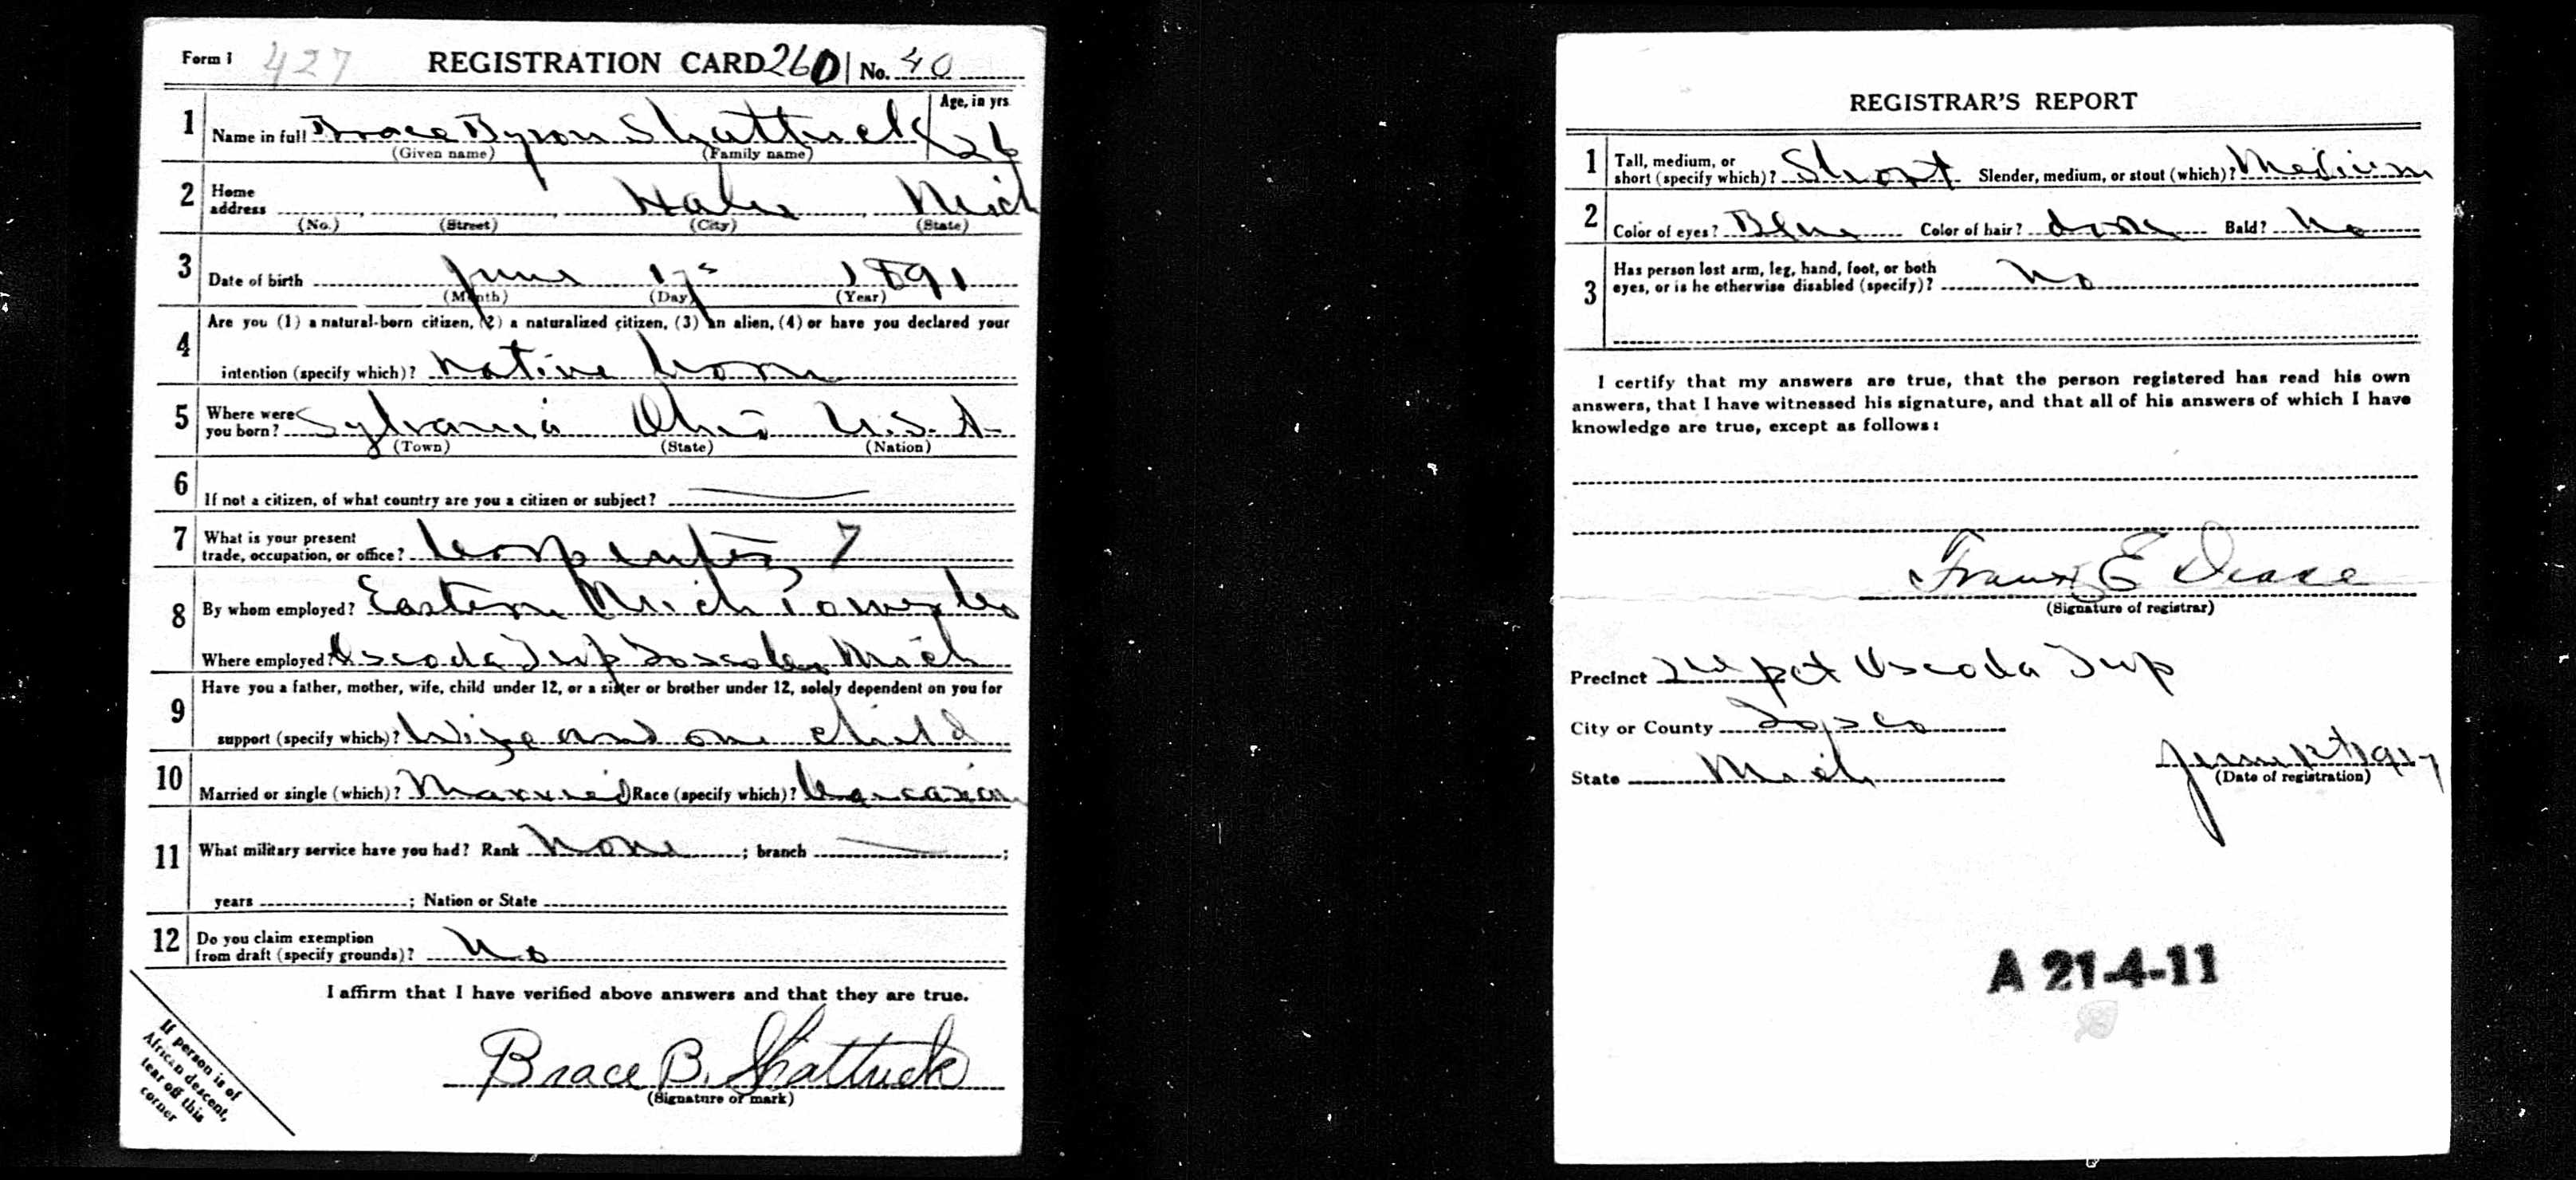 Form 1 427 REGISTRATION CARD 260 | No. 40
1 Name in full Brace Byron Shattuck Age, in yrs 26
(Given name) (Family name)
2 Home address Hale Mich
(No.) (Street) (City) (State)
3 Date of birth June 17 1891
(Month) (Day) (Year)
4 Are you (1) a natural-born citizen, (2) a naturalized citizen, (3) an alien, (4) or have you declared your
intention (specify which)? Native born
5 Where were you born? Sylvania Ohio U.S.A.
(Town) (State) (Nation)
6 If not a citizen, of what country are you a citizen or subject?
7 What is your present trade, occupation, or office? 7
8 By whom employed? Eastern Mich
Where employed? Oscoda Twp Mich
9 Have you a father, mother, wife, child under 12, or a sister or brother under 12, solely dependent on you for
support (specify which)? Wife and one child
10 Married or single (which)? Married Race (specify which)? Caucasian
11 What military service have you had? Rank None ; branch ;
years ; Nation or State
12 Do you claim exemption from draft (specify grounds)? No
I affirm that I have verified above answers and that they are true.
Brace B. Shattuck
(Signature or mark)
If person is of
African descent,
tear off this
corner
REGISTRAR'S REPORT
1 Tall, medium, or short (specify which)? Short Slender, medium, or stout (which)? Medium
2 Color of eyes? Blue Color of hair? dark Bald? No
3 Has person lost arm, leg, hand, foot, or both
eyes, or is he otherwise disabled (specify)? No
I certify that my answers are true, that the person registered has read his own
answers, that I have witnessed his signature, and that all of his answers of which I have
knowledge are true, except as follows:
Frank E
(Signature of registrar)
Precinct pct Oscoda Twp
City or County Iosco
State Mich June 1917
(Date of registration)
A 21-4-11